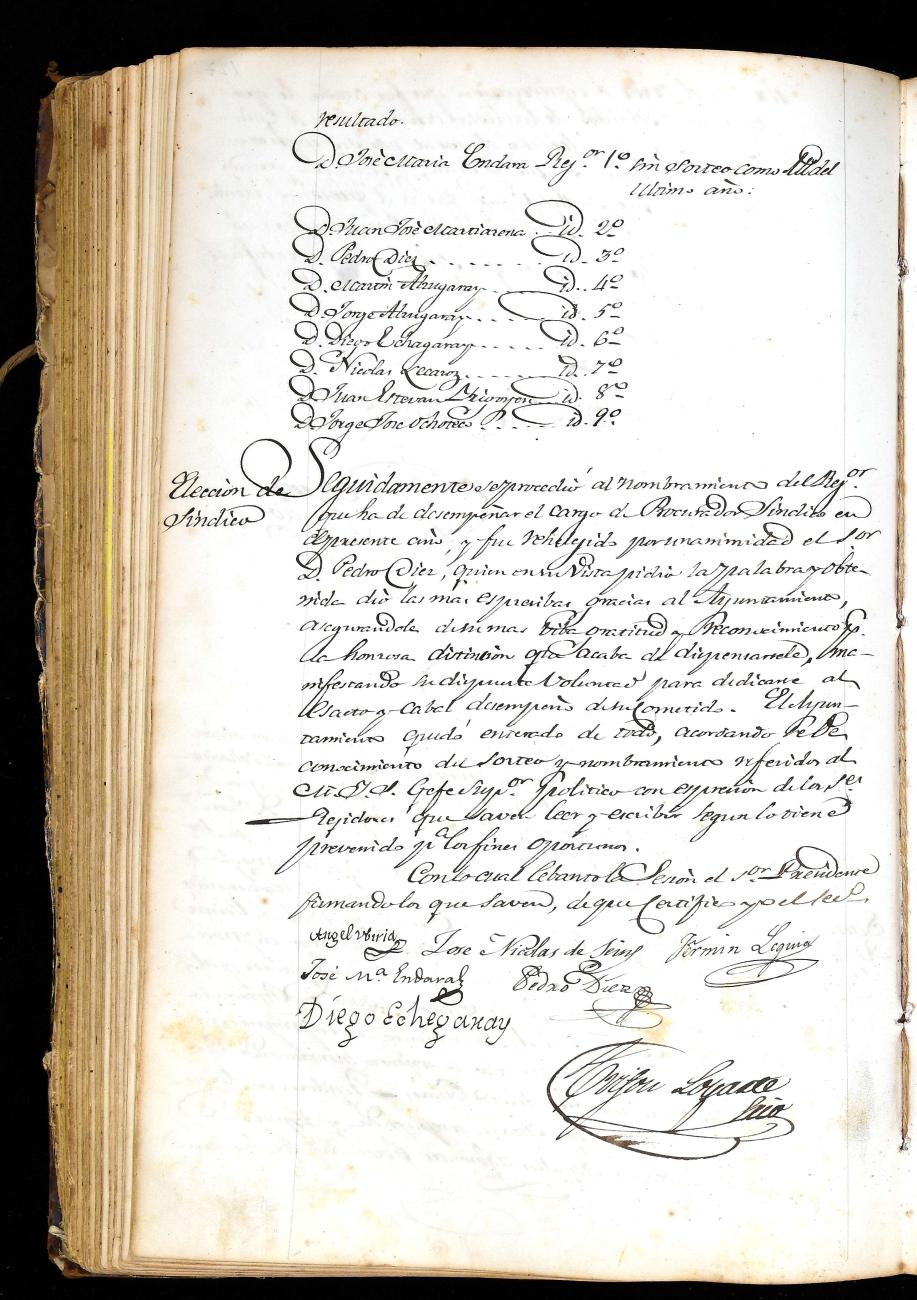 resultado.
D. José Maria Endara Rejor. 1º sin sorteo como del
ultimo año:
D. Juan José Marticorena .. id. 2º
D. Pedro Diez . . . . . . . id. 3º
D. Martin Alzugaray . . . . id. 4º
D. Jorge Alzugaray . . . . id. 5º
D. Diego Echagaray . . . . id. 6º
D. Nicolas Lecaroz . . . . id. 7º
D. Juan Estevan . . id. 8º
D. Jorge José Ochoteco . . id. 9º
Elección de
Sindico
Seguidamente se procedió al nombramiento del Rejor.
que ha de desempeñar el cargo de Procurador Sindico en
el presente año, y fue rehelejido por unanimidad el Sor
D. Pedro Diez, quien en su vista pidio la palabra y obte-
nida dió las mas espresibas gracias al Ayuntamiento,
asegurandole de su mas biba gratitud y Reconocimiento p.
la honrosa distincion que acaba de dispensarsele, ma-
nifestando su dispuesta voluntad para dedicarse al
esacto y cabal desempeño de su cometido. El Ayun-
tamiento quedó enterado de todo, acordando se dé
conocimiento del sorteo y nombramiento referidos al
M. I. S. Gefe Supor. politico con expresion de los Ses.
Rejidores que saven leer y escribir segun lo tiene
prevenido p.ª los fines oportunos.
Con lo cual lebanto la Sesion el Sor Presidente
firmando los que saven, de que Certifico yo el Secº.
Angel Ubiria Jose Nicolas de Fermin Leguia
José Mª Endara Pedro Diez
Diego Echegaray
Loyarte
Srio